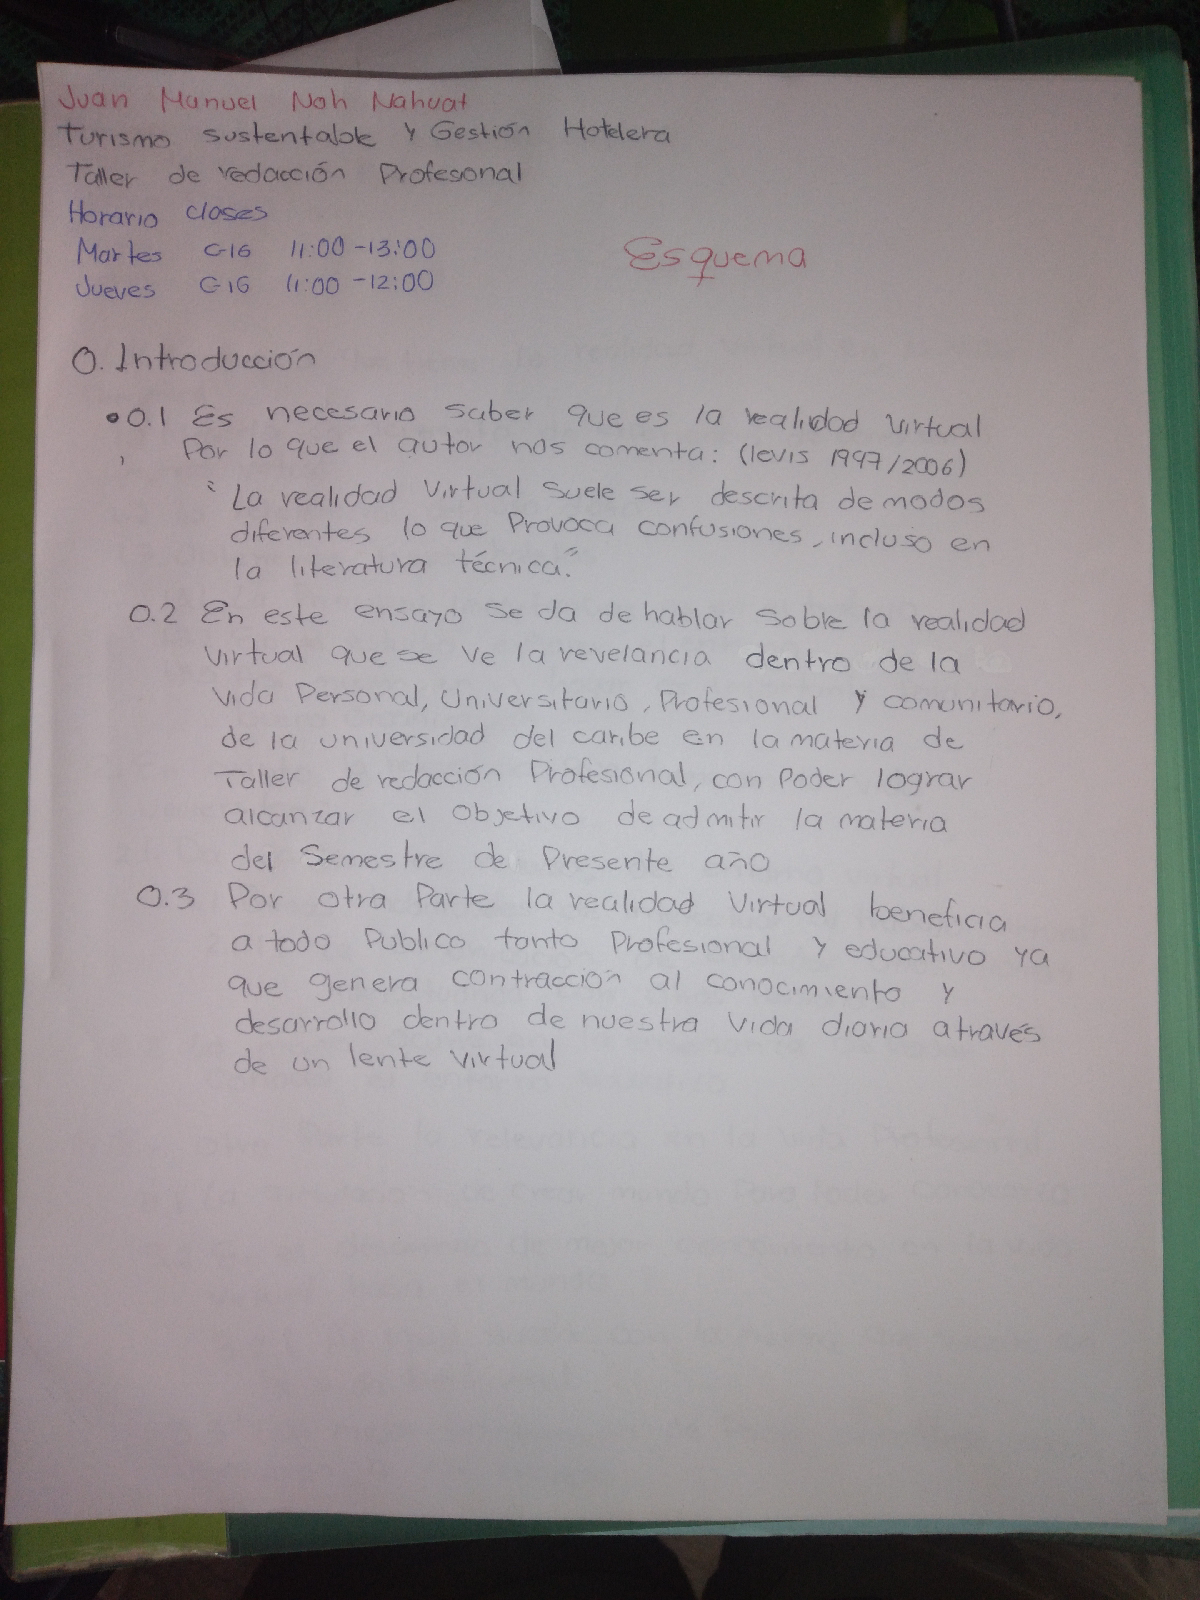 Juan Manuel Noh Nahuat
Turismo sustentable y Gestión Hotelera
Taller de redacción Profesional
Horario clases
Martes G16 11:00 - 13:00
Jueves G16 11:00 - 12:00
Esquema
0. Introducción
• 0.1 Es necesario saber que es la realidad virtual
Por lo que el autor nos comenta: (levis 1997/2006)
"La realidad Virtual suele ser descrita de modos
diferentes lo que Provoca confusiones, incluso en
la literatura técnica."
0.2 En este ensayo se da de hablar soble la realidad
virtual que se ve la revelancia dentro de la
vida Personal, Universitario, Profesional y comunitario,
de la universidad del caribe en la materia de
Taller de redacción Profesional, con Poder lograr
alcanzar el objetivo de admitir la materia
del Semestre de Presente año
0.3 Por otra Parte la realidad Virtual beneficia
a todo Publico tanto Profesional y educativo ya
que genera contracción al conocimiento y
desarrollo dentro de nuestra vida diaria através
de un lente virtual